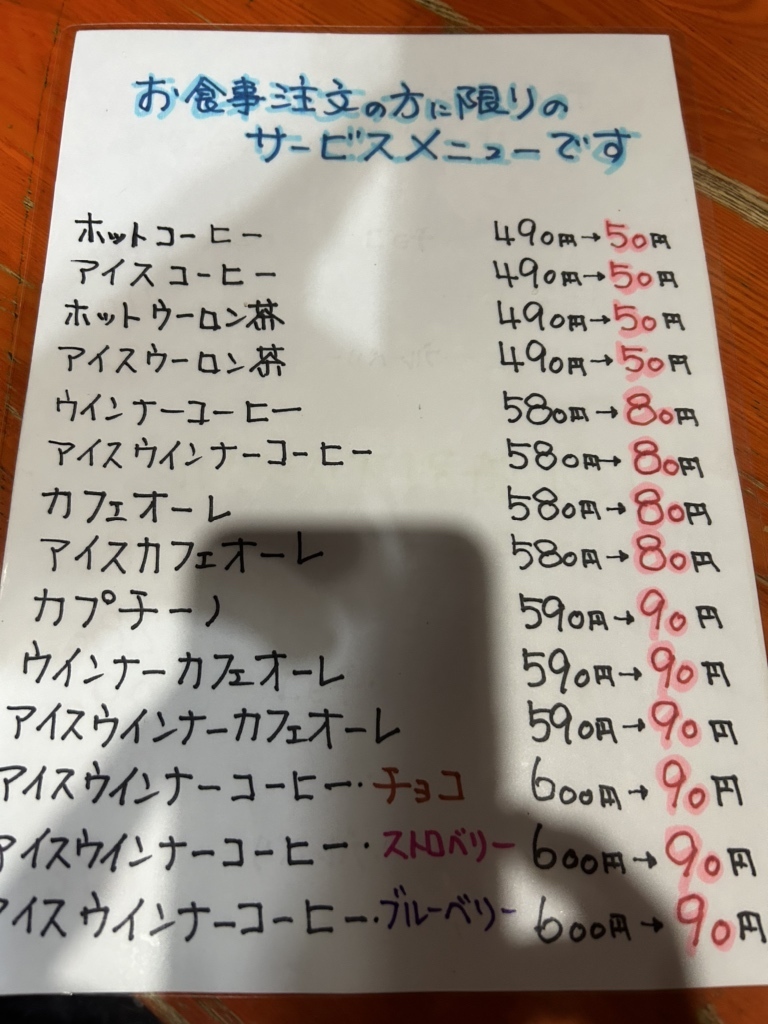 お食事注文の方に限りの
サービスメニューです
ホットコーヒー 490円→50円
アイスコーヒー 490円→50円
ホットウーロン茶 490円→50円
アイスウーロン茶 490円→50円
ウインナーコーヒー 580円→80円
アイスウインナーコーヒー 580円→80円
カフェオーレ 580円→80円
アイスカフェオーレ 580円→80円
カプチーノ 590円→90円
ウインナーカフェオーレ 590円→90円
アイスウインナーカフェオーレ 590円→90円
アイスウインナーコーヒー・チョコ 600円→90円
アイスウインナーコーヒー・ストロベリー 600円→90円
アイスウインナーコーヒー・ブルーベリー 600円→90円